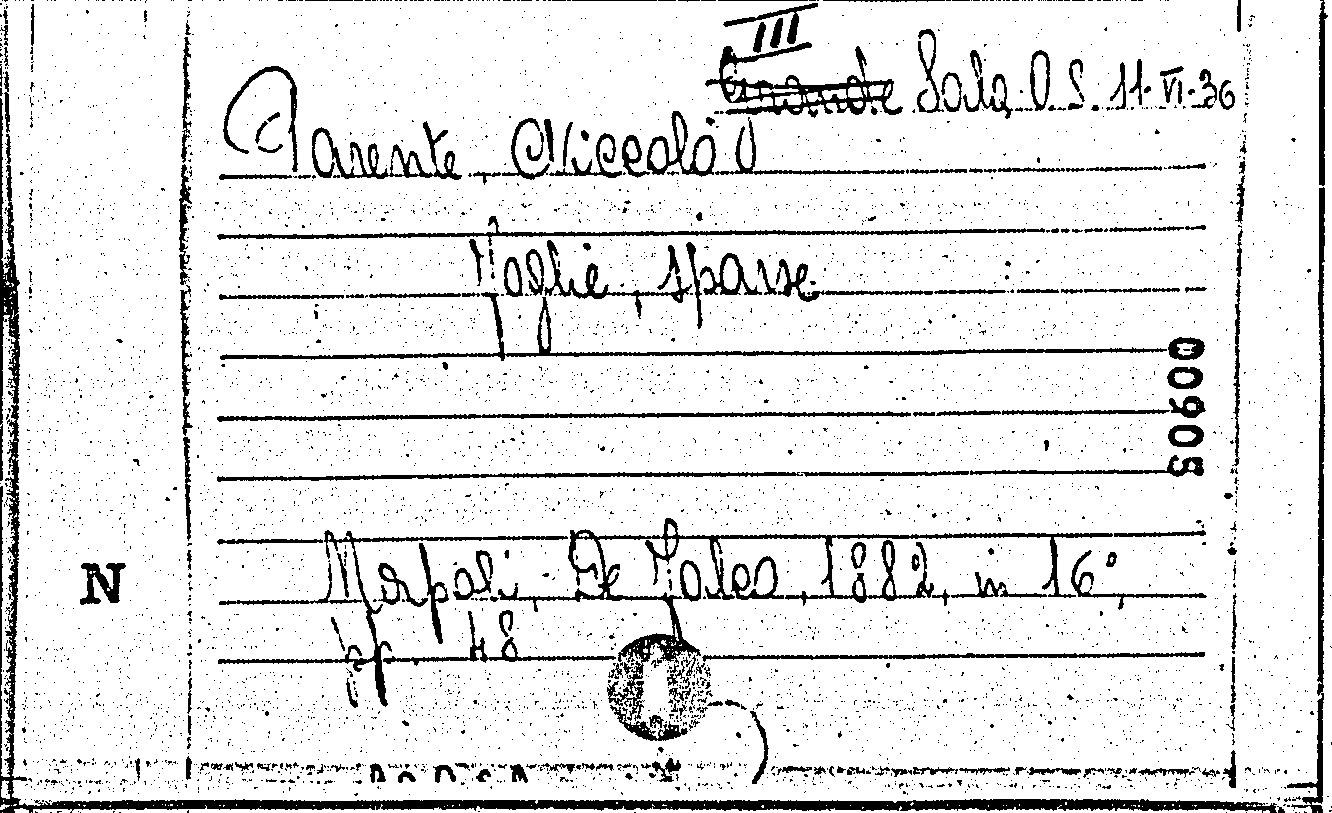 III
Sala O. S. 11-VI-36
Parente, Niccolò
Foglie, sparse
00905
Napoli, De Falco, 1882, in 16°,
N
pp. 48